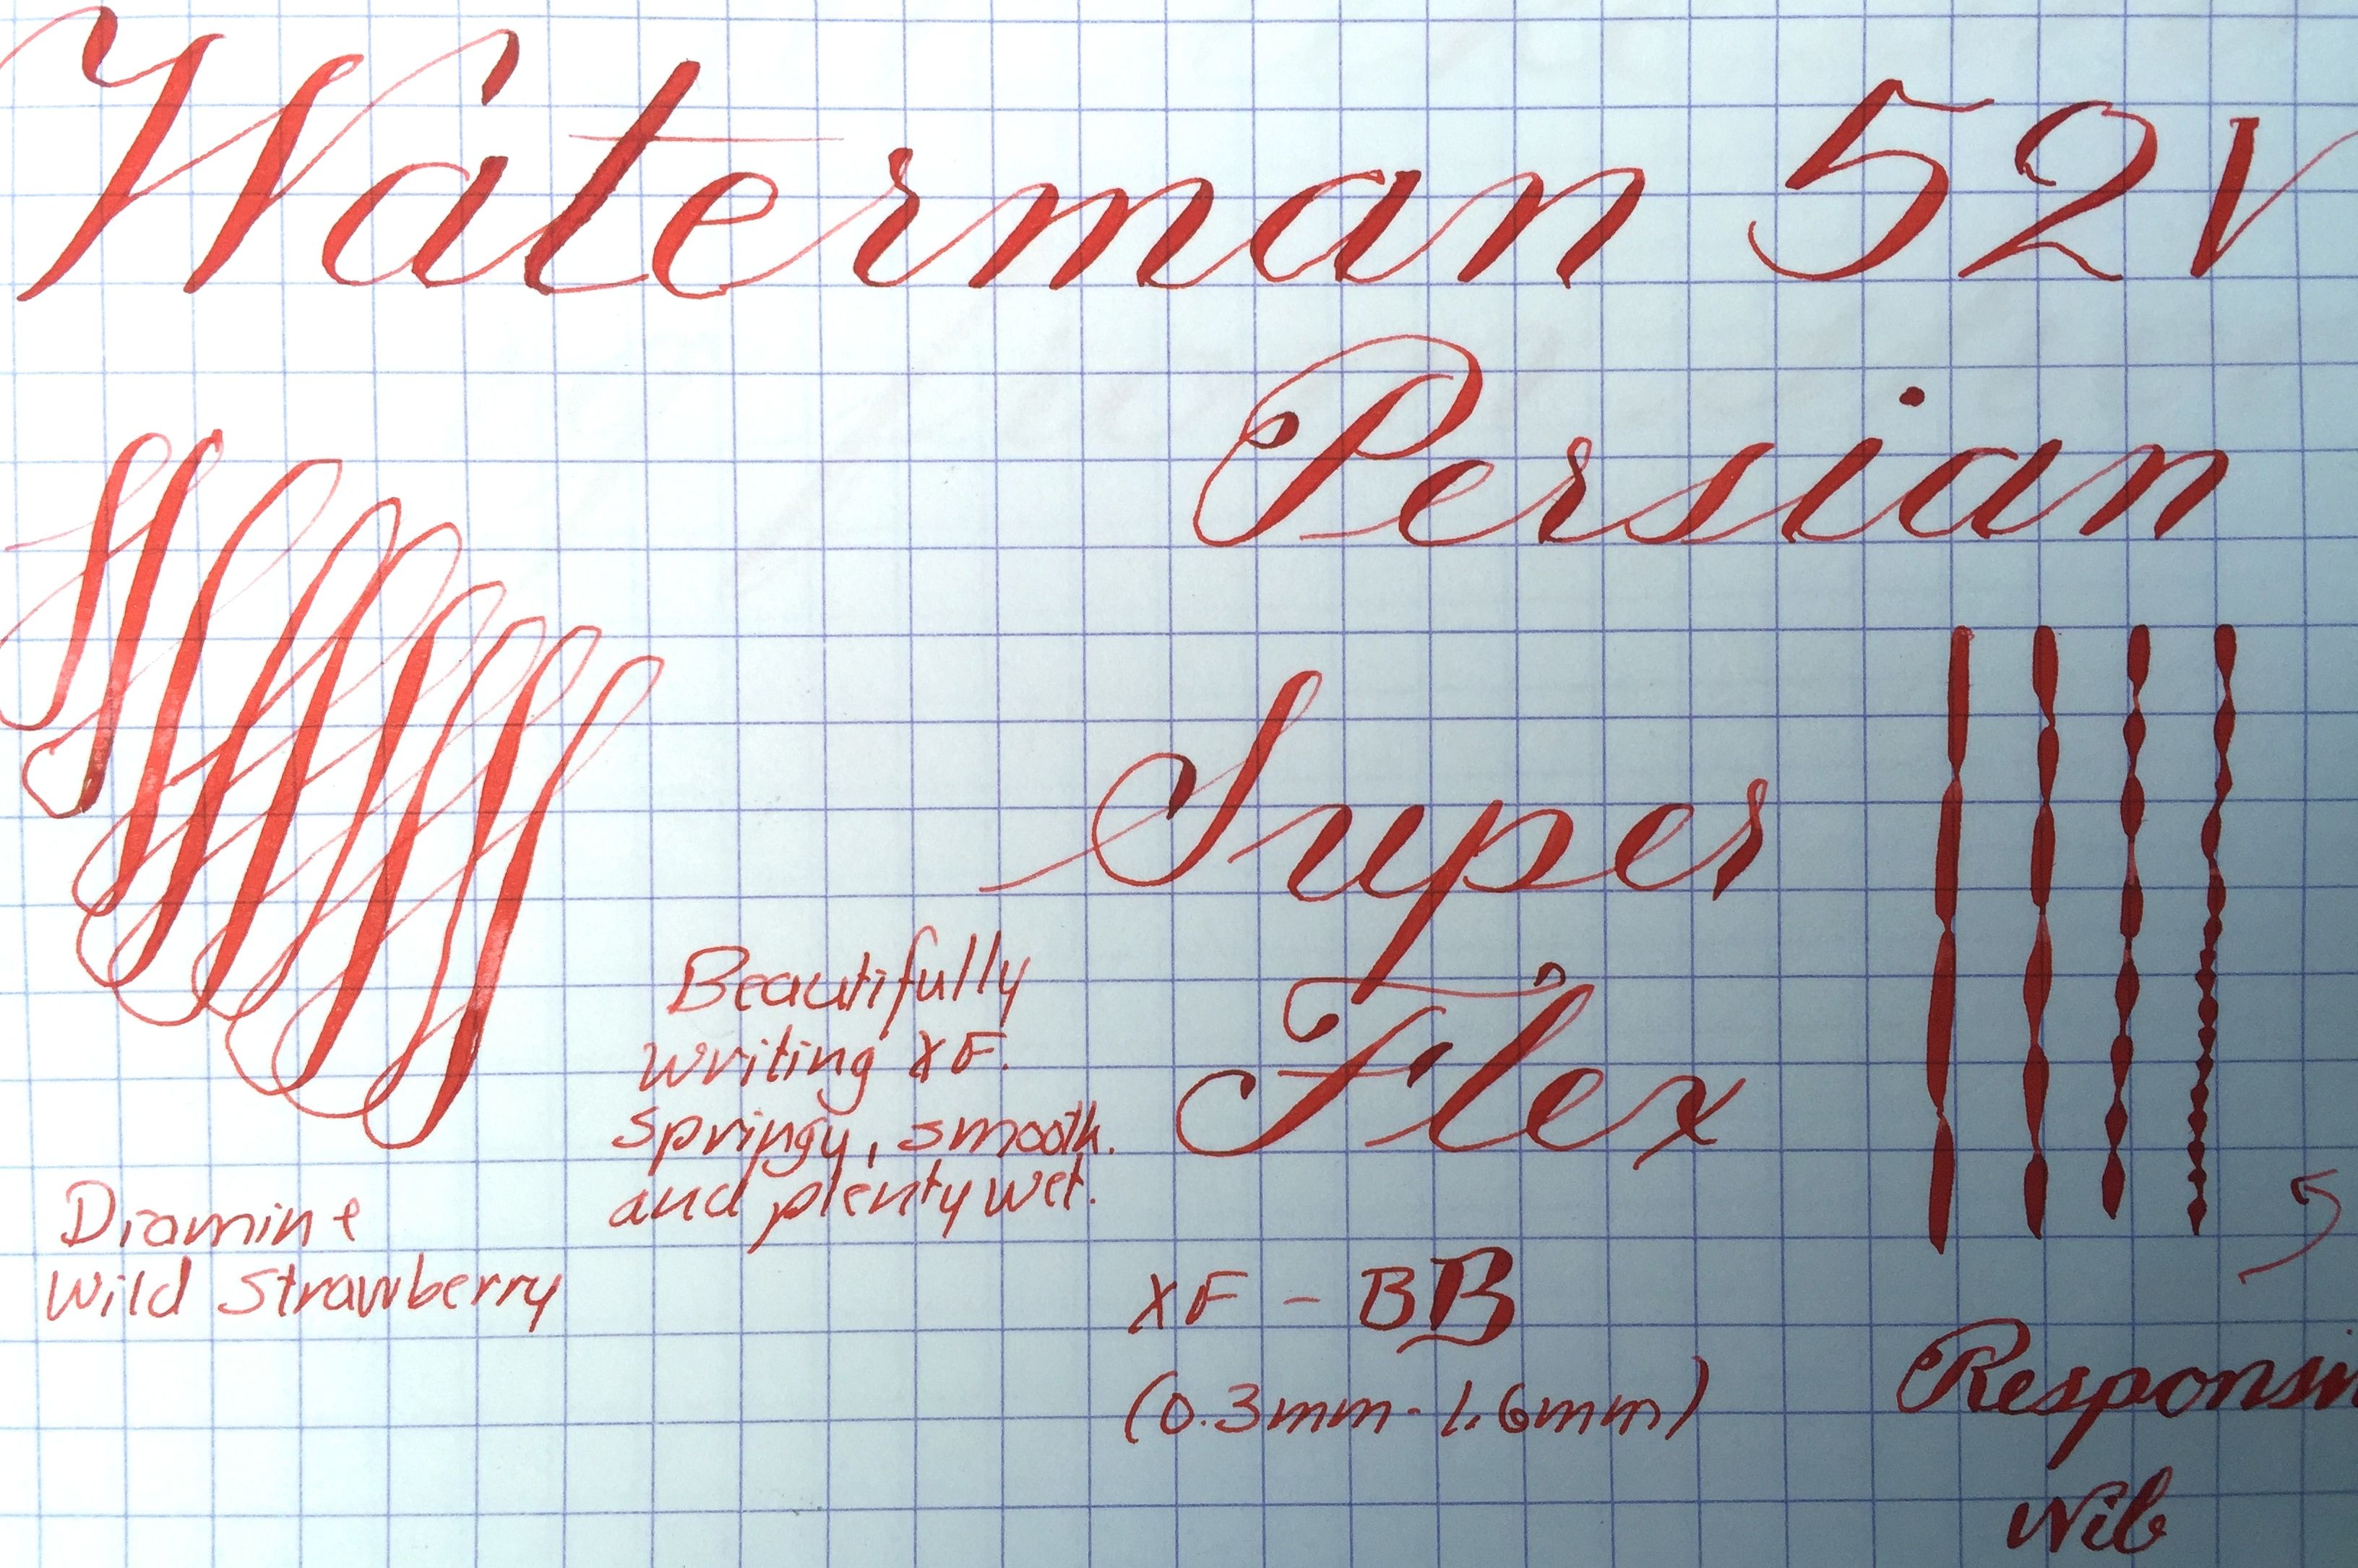 Waterman 52V
Persian
Super
Flex
Beautifully
writing XF.
springy, smooth.
and plenty wet.
Diamine
Wild Strawberry
XF - BB
(0.3mm - 1.6mm)
Responsi
Nib